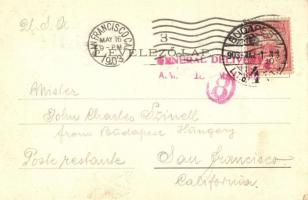 U.S.A.
SAN FRANCISCO, CAL.
MAY 16
9-PM
1903
3
LEVELEZŐLAP
BUDAPEST
GENERAL DELIVERY
A.M.
8
Mister
John Charles Szinell
from Budapest Hungary
Poste restante San Francisco
California.